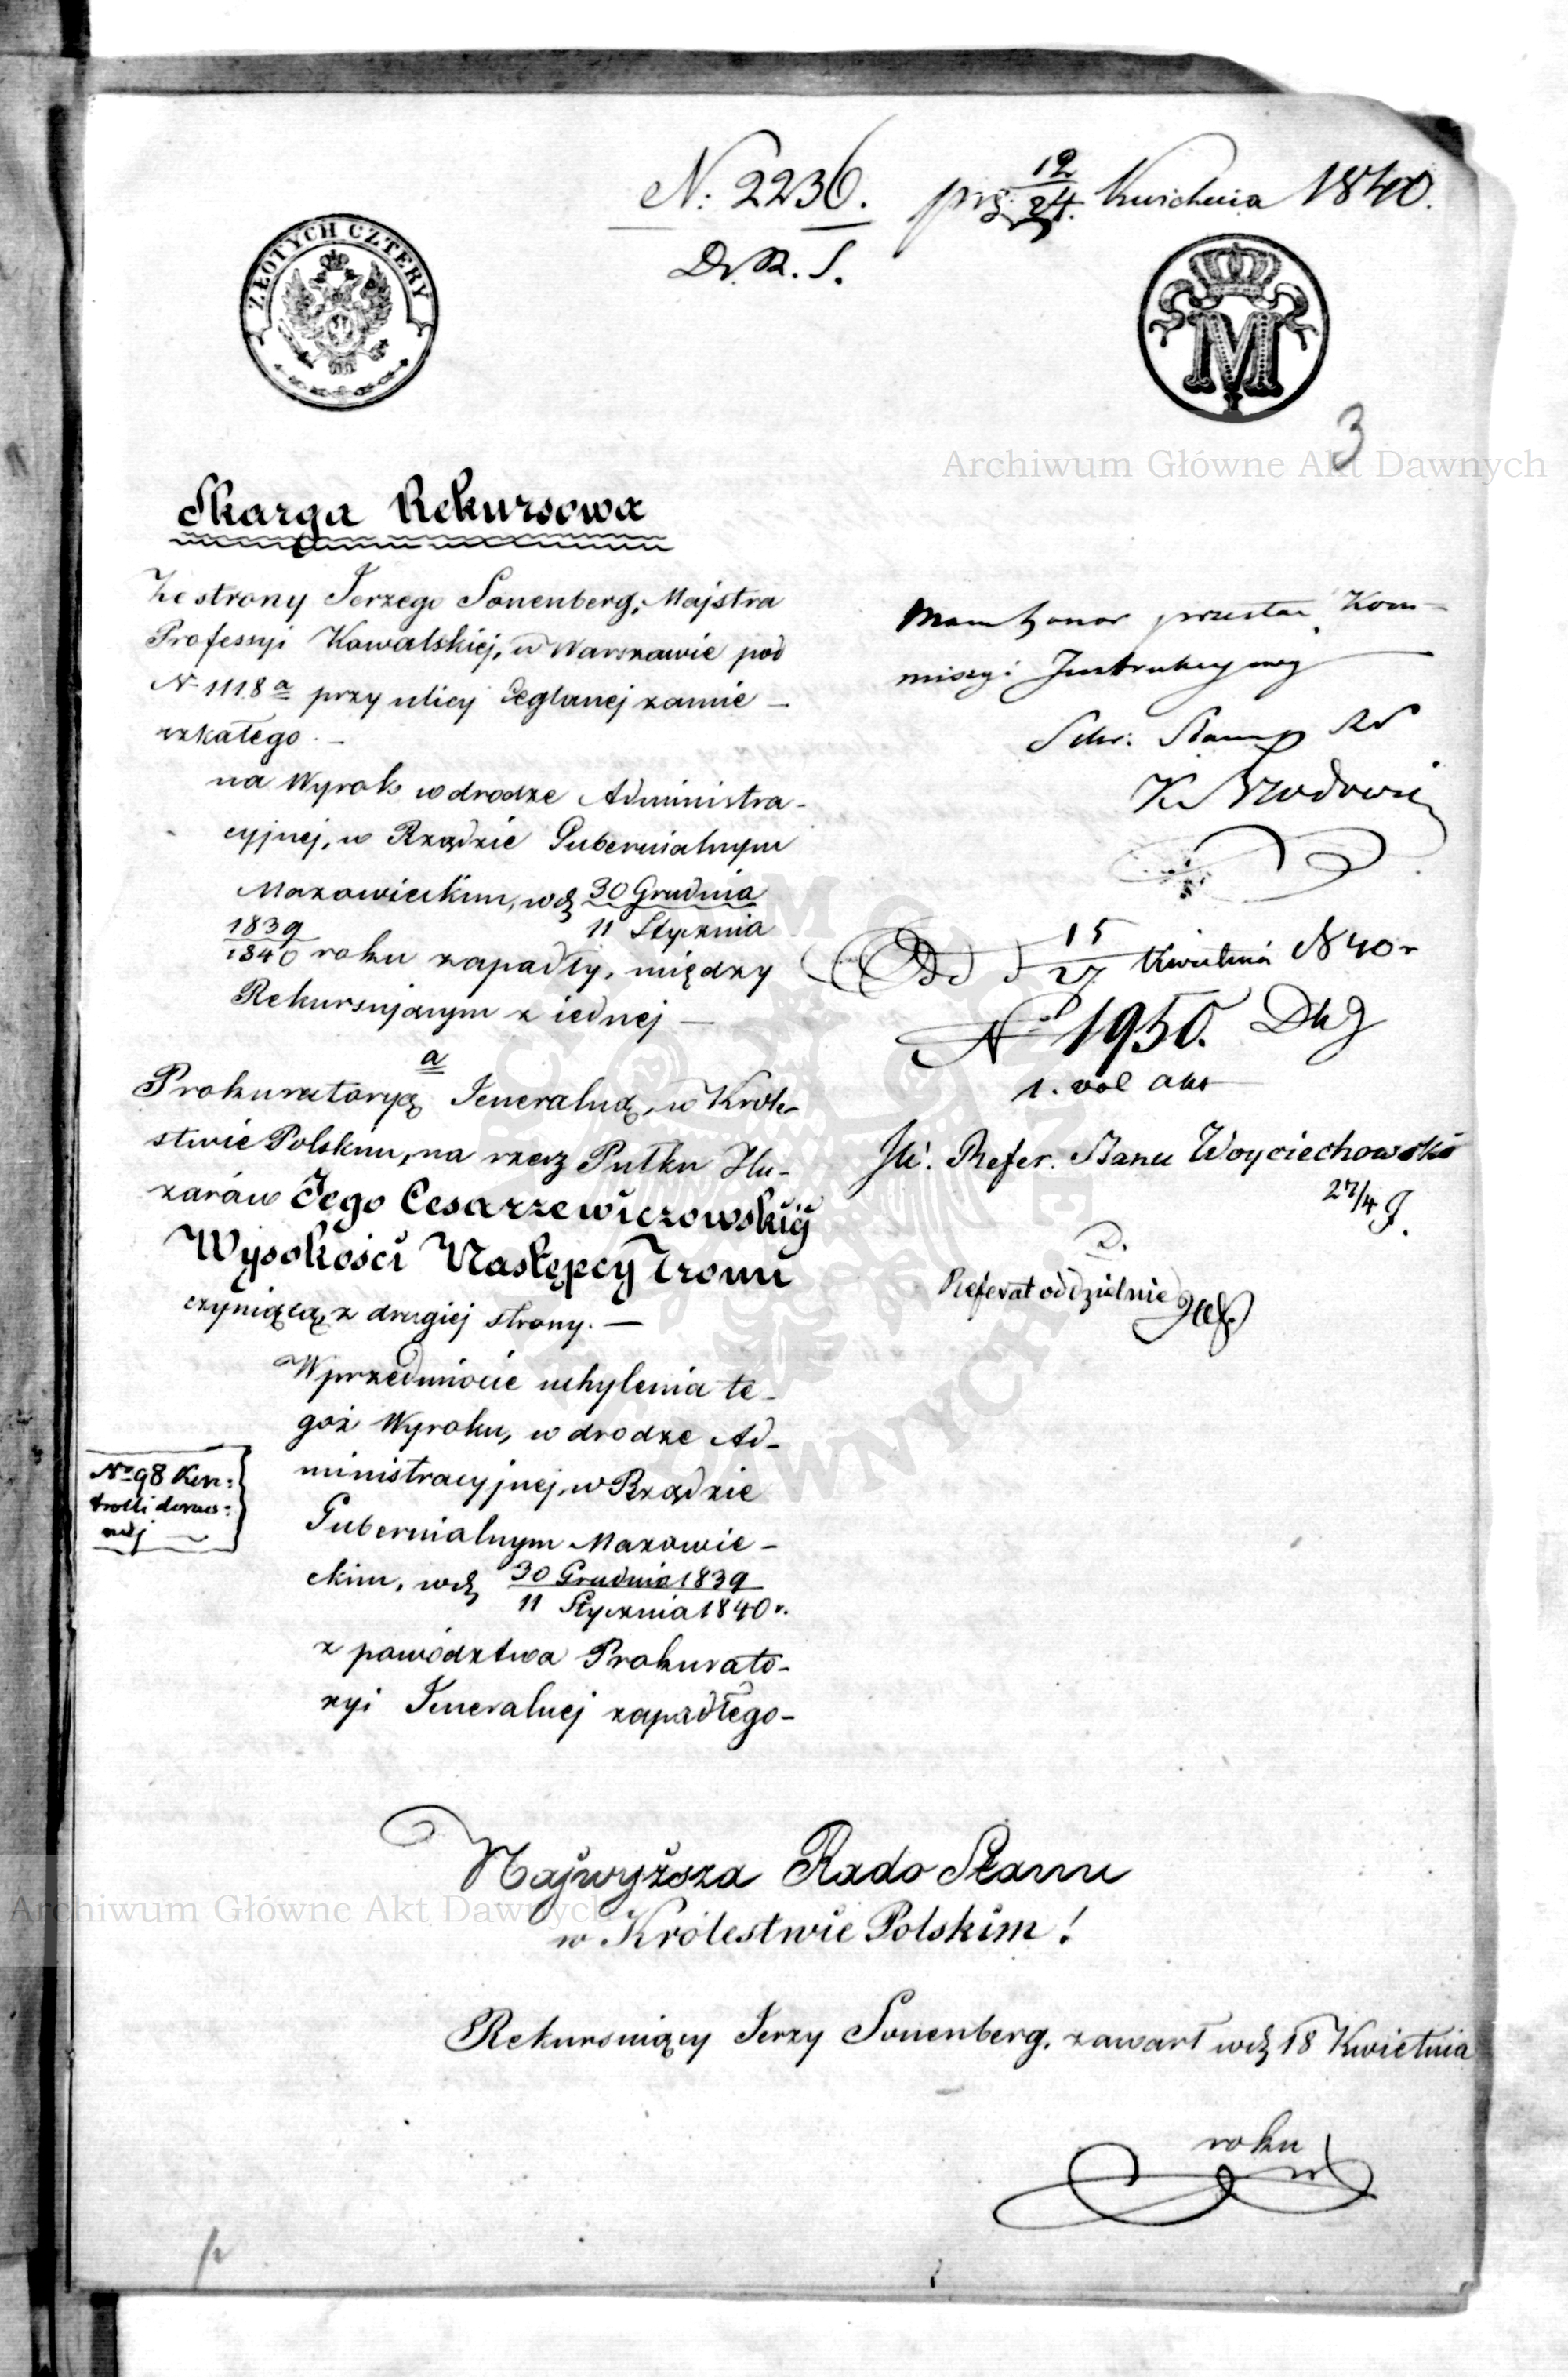 N: 2236. prz. 12/24. Kwietnia 1840.
D. R. S.
ZŁOTYCH CZTERY
M
3
Archiwum Główne Akt Dawnych
Skarga Rekursowa
Ze strony Jerzego Sonenberg, Majstra
Professyi Kowalskiej, w Warszawie pod
N 1118 a przy ulicy Ceglanej zamie-
szkałego. -
na Wyrok w drodze Administra-
cyjnej, w Rządzie Gubernialnym
Mazowieckim, w d. 30 Grudnia
11 Stycznia
1839/1840 roku zapadły, między
Rekursującym z iednej -
a
Prokuratoryą Jeneralną, w Króle-
stwie Polskim, na rzecz Pułku Hu-
zarów Jego Cesarzewiczowskiij
Wysokości Następcy Tronu
czyniącą z drugiej strony. -
W przedmiocie uchylenia te-
goż Wyroku, w drodze Ad-
ministracyjnej, w Rządzie
Gubernialnym Mazowie-
ckim, w d. 30 Grudnia 1839
11 Stycznia 1840 r.
z powództwa Prokurato-
ryi Jeneralnej zapadłego-
No 98 Kon:
trolli
Mam honor przesłać Kom-
missyi Instrukcyjney
Sekr: Stanu RS
K
Dd 15/27 Kwietnia 1840 r
No 1950.
1. vol akt
JW. Refer. Stanu Woyciechowski
27/4 J.
Referat oddzielnie
Najwyższa Rado Stanu
w Królestwie Polskim!
Archiwum Główne Akt Dawnych
Rekursuiący Jerzy Sonenberg, zawarł w d. 18 Kwietnia
roku